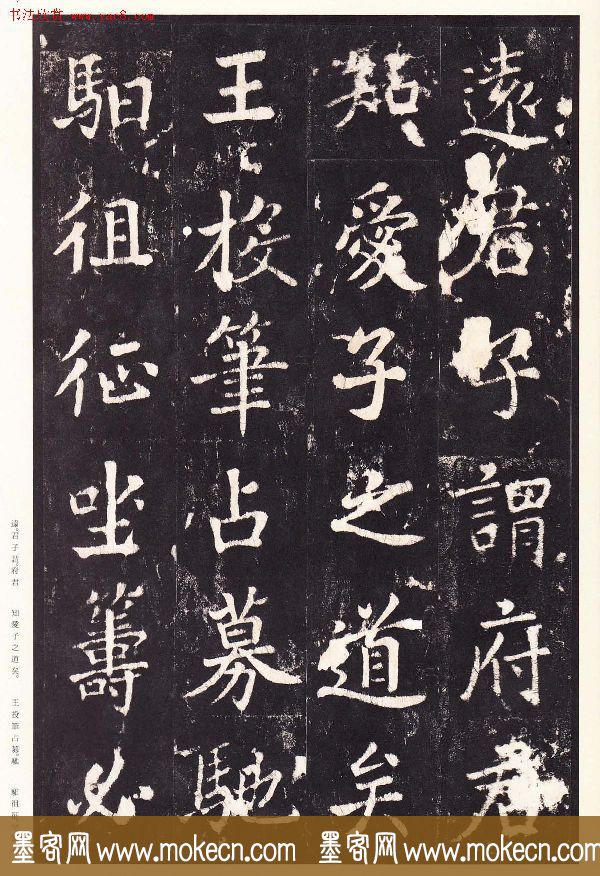 书法欣赏
遠君子謂府君
知愛子之道矣
王投筆占募馳
馹徂征坐籌必
遠君子謂府君 知愛子之道矣。 王投筆占募馳 馹徂
墨客网 www.mokecn.com 墨客网 www.mokecn.com